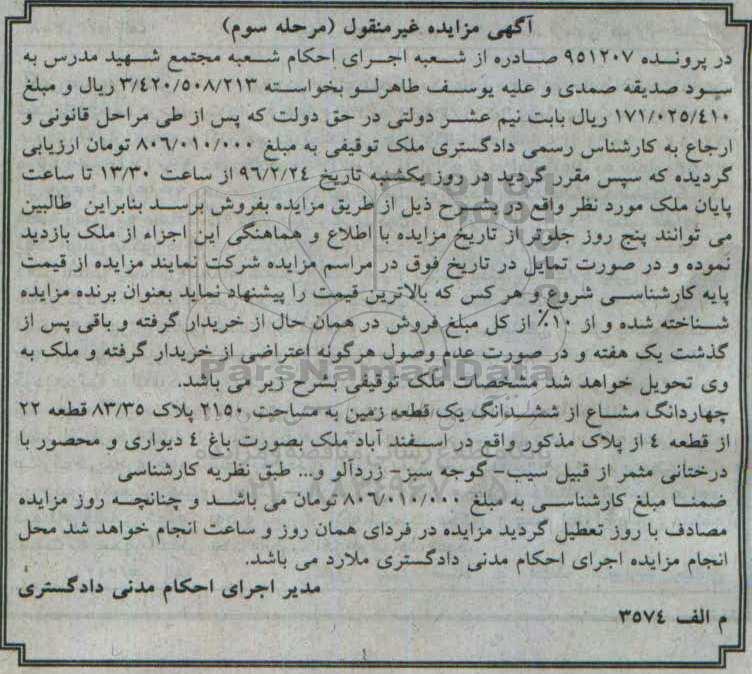 آگهی مزایده غیرمنقول (مرحله سوم)
در پرونده ۹۵۱۲۰۷ صادره از شعبه اجرای احکام شعبه مجتمع شهید مدرس به
سود صدیقه صمدی و علیه یوسف طاهرلو بخواسته ۳/۴۲۰/۵۰۸/۲۱۳ ریال و مبلغ
۱۷۱/۰۲۵/۴۱۰ ریال بابت نیم عشر دولتی در حق دولت که پس از طی مراحل قانونی و
ارجاع به کارشناس رسمی دادگستری ملک توقیفی به مبلغ ۸۰۶/۰۱۰/۰۰۰ تومان ارزیابی
گردیده که سپس مقرر گردید در روز یکشنبه تاریخ ۹۶/۲/۲۴ از ساعت ۱۳/۳۰ تا ساعت
پایان ملک مورد نظر واقع در شرح ذیل از طریق مزایده بفروش برسد بنابراین طالبین
می توانند پنج روز جلوتر از تاریخ مزایده با اطلاع و هماهنگی این اجراء از ملک بازدید
نموده و در صورت تمایل در تاریخ فوق در مراسم مزایده شرکت نمایند مزایده از قیمت
پایه کارشناسی شروع و هر کس که بالاترین قیمت را پیشنهاد نماید بعنوان برنده مزایده
شناخته شده و از ۱۰٪ از کل مبلغ فروش در همان حال از خریدار گرفته و باقی پس از
گذشت یک هفته و در صورت عدم وصول هرگونه اعتراضی از خریدار گرفته و ملک به
وی تحویل خواهد شد مشخصات ملک توقیفی بشرح زیر می باشد.
چهاردانگ مشاع از ششدانگ یک قطعه زمین به مساحت ۲۱۵۰ پلاک ۸۳/۳۵ قطعه ۲۲
از قطعه ۴ از پلاک مذکور واقع در اسفند آباد ملک بصورت باغ ۴ دیواری و محصور با
درختانی مثمر از قبیل سیب- گوجه سبز- زردآلو و... طبق نظریه کارشناسی
ضمنا مبلغ کارشناسی به مبلغ ۸۰۶/۰۱۰/۰۰۰ تومان می باشد و چنانچه روز مزایده
مصادف با روز تعطیل گردید مزایده در فردای همان روز و ساعت انجام خواهد شد محل
انجام مزایده اجرای احکام مدنی دادگستری ملارد می باشد.
مدیر اجرای احکام مدنی دادگستری
م الف ۳۵۷۴
ParsNamadData